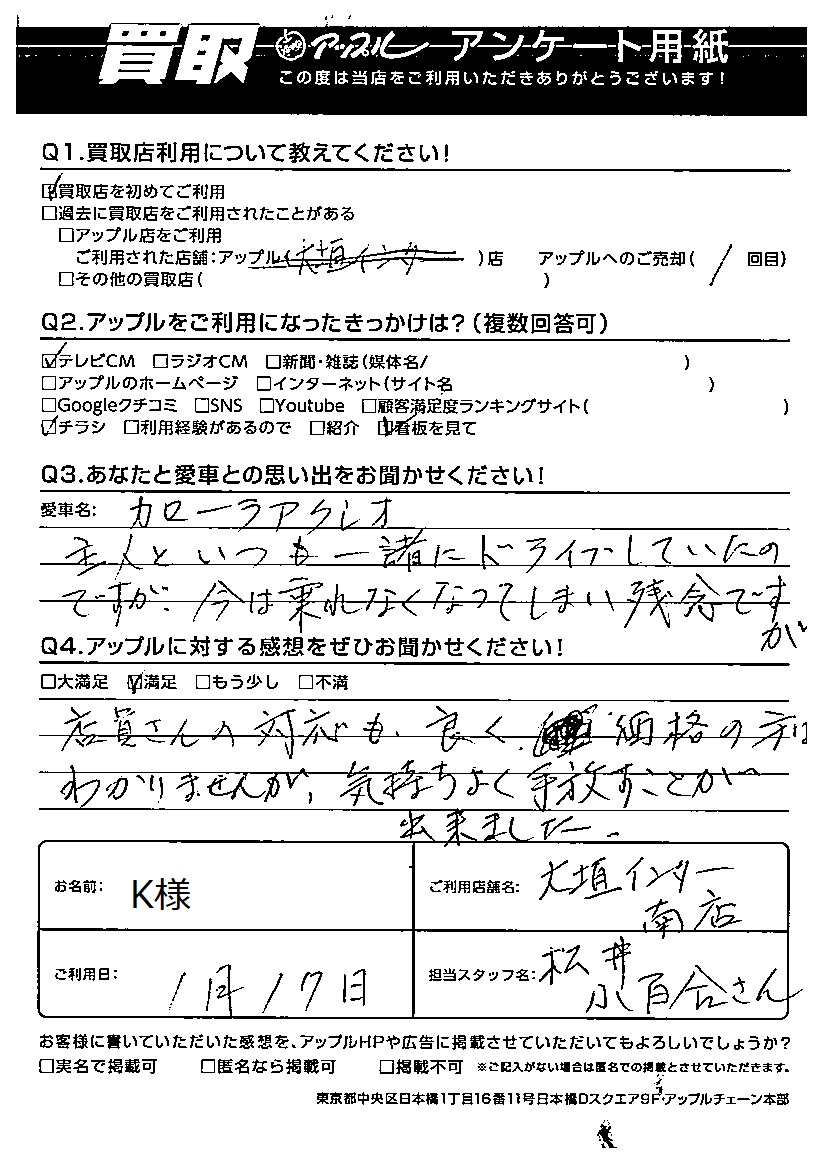 買取 アップル アンケート用紙
この度は当店をご利用いただきありがとうございます!
Q1.買取店利用について教えてください!
☑買取店を初めてご利用
□過去に買取店をご利用されたことがある
□アップル店をご利用
ご利用された店舗:アップル(大垣インター)店 アップルへのご売却( / 回目)
□その他の買取店( )
Q2.アップルをご利用になったきっかけは?(複数回答可)
☑テレビCM □ラジオCM □新聞・雑誌(媒体名/ )
□アップルのホームページ □インターネット(サイト名 )
□Googleクチコミ □SNS □Youtube □顧客満足度ランキングサイト( )
☑チラシ □利用経験があるので □紹介 ☑看板を見て
Q3.あなたと愛車との思い出をお聞かせください!
愛車名: カローラアクレオ
主人といつも一諸にドライブしていたの
ですが、今は乗れなくなってしまい残念です
が
Q4.アップルに対する感想をぜひお聞かせください!
□大満足 ☑満足 □もう少し □不満
店員さんの対応も、良く、価格の方は
わかりませんが、気持ちよく手放すことが
出来ました。
お名前: K様
ご利用店舗名: 大垣インター
南店
ご利用日: 1月17日
担当スタッフ名: 松井
小百合さん
お客様に書いていただいた感想を、アップルHPや広告に掲載させていただいてもよろしいでしょうか?
□実名で掲載可 □匿名なら掲載可 □掲載不可 ※ご記入がない場合は匿名での掲載とさせていただきます。
東京都中央区日本橋1丁目16番11号日本橋Dスクエア9F・アップルチェーン本部